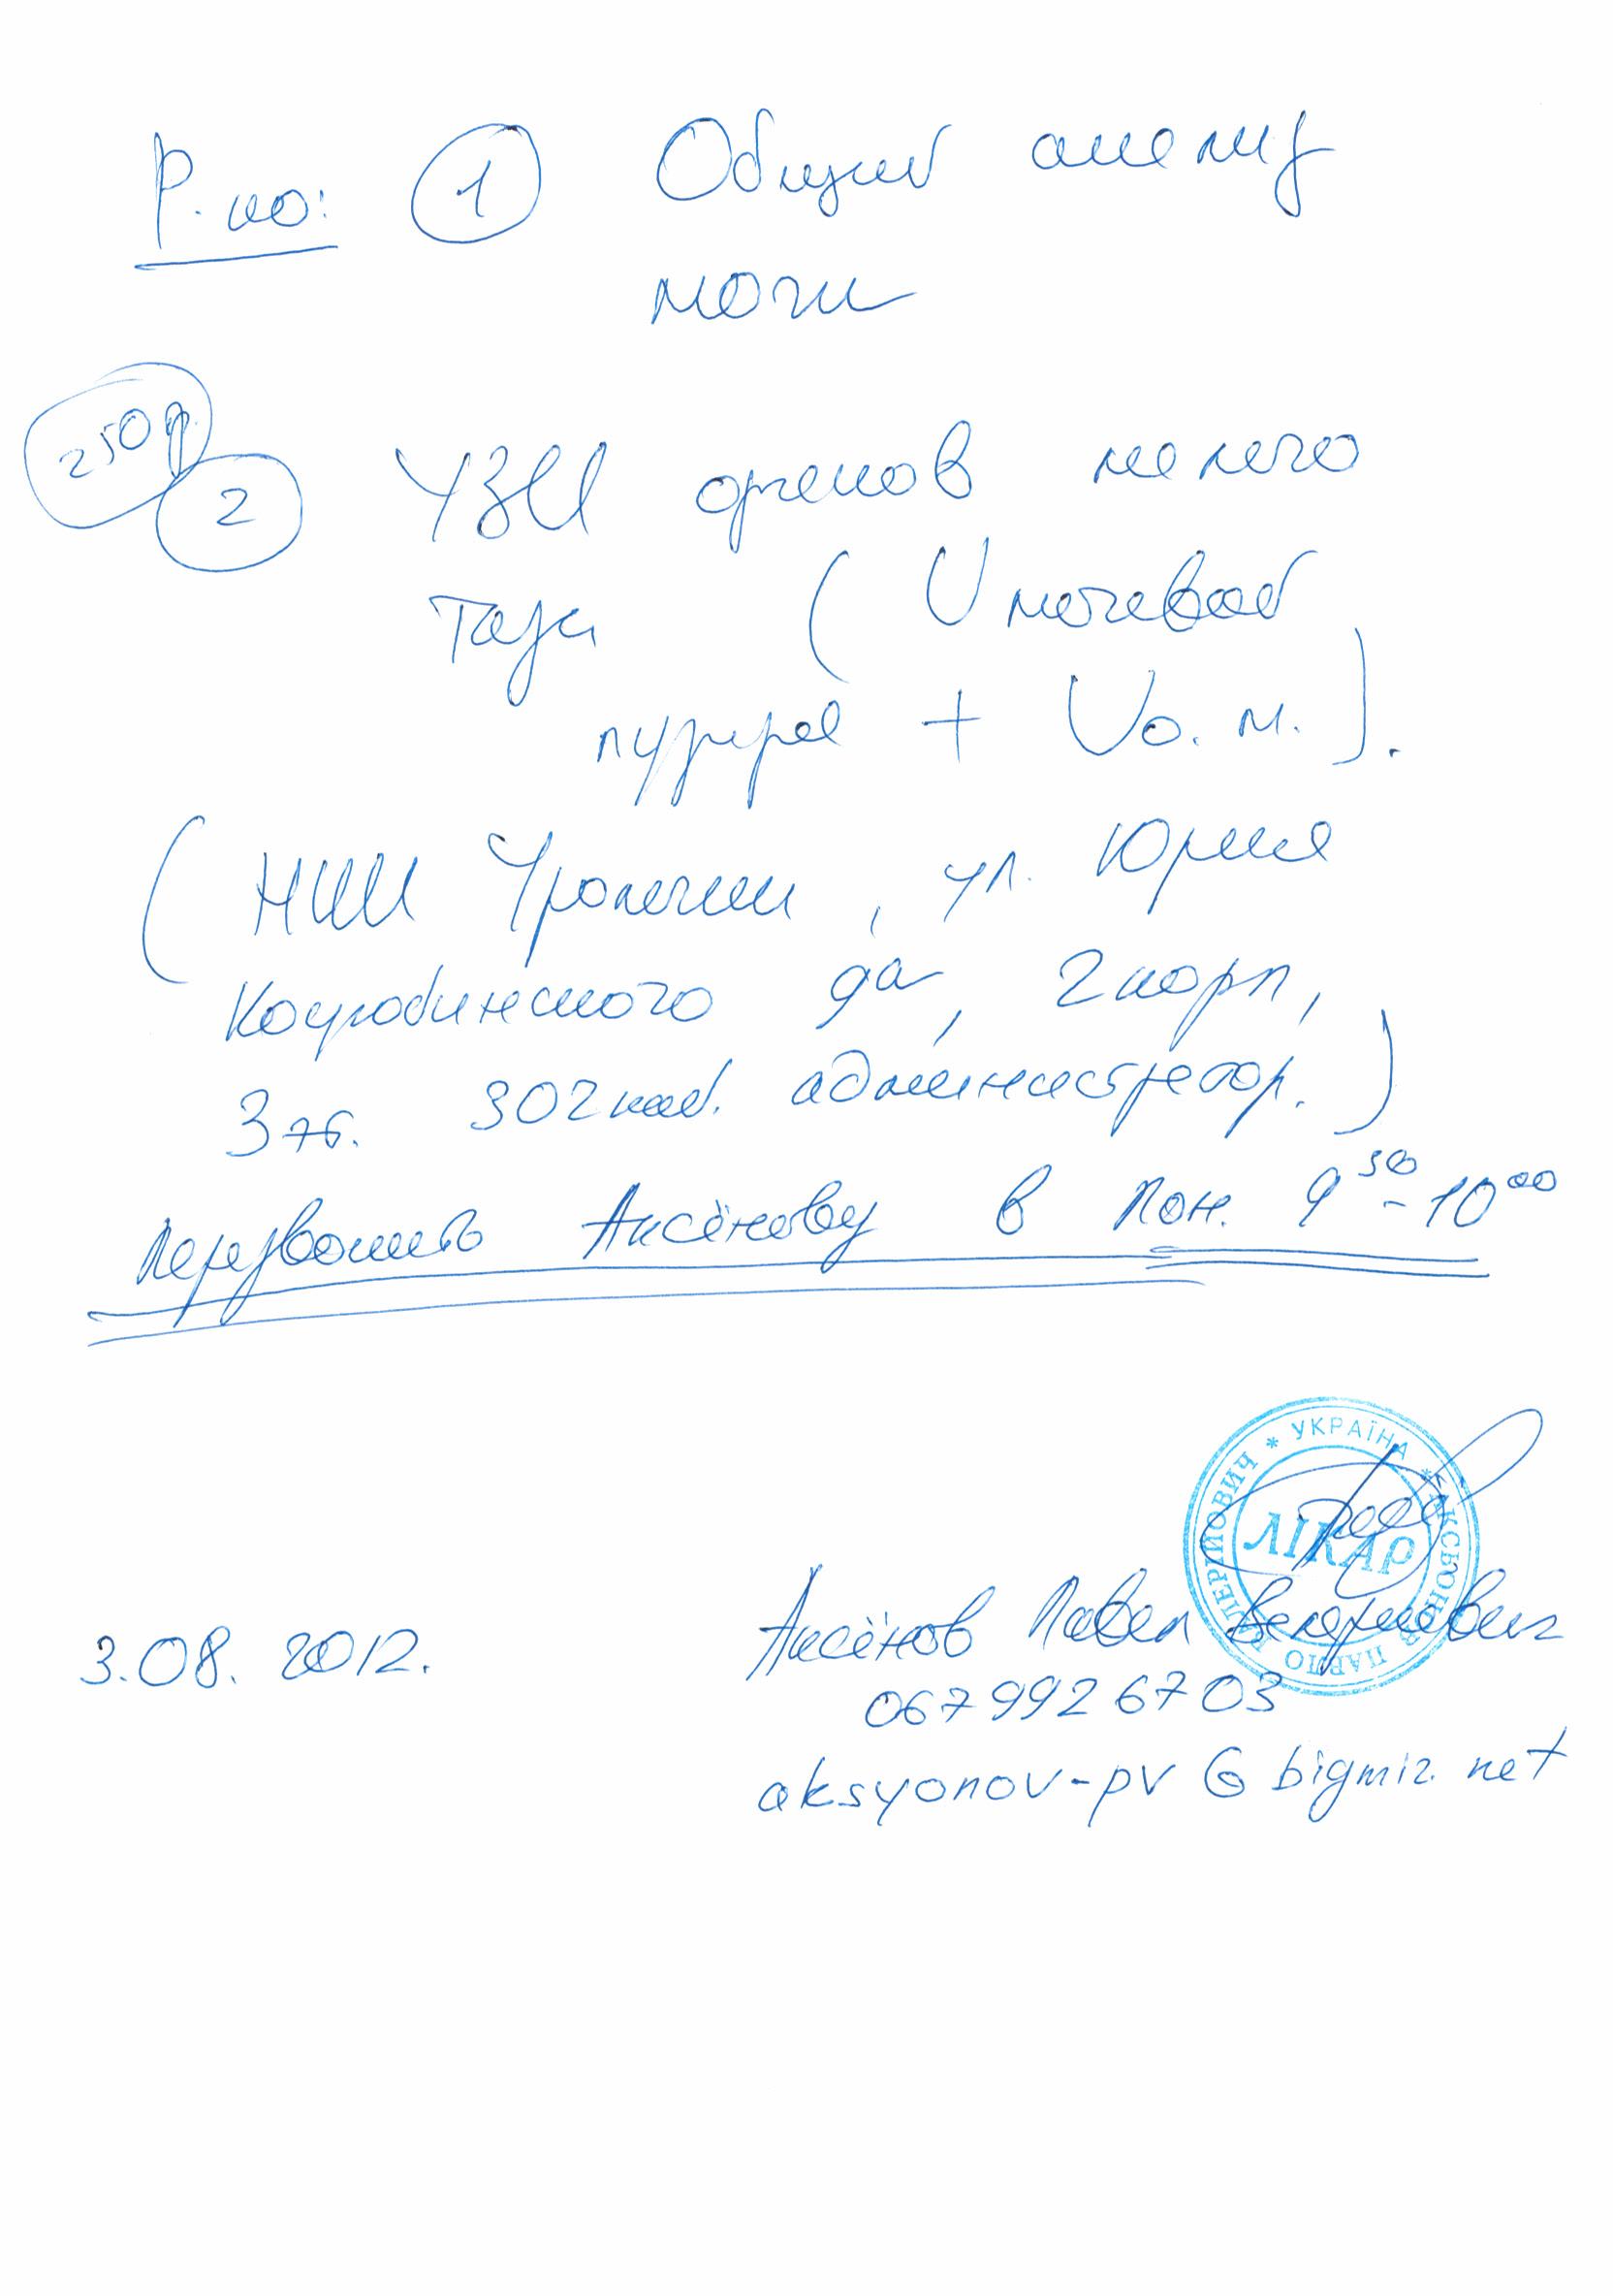 Р-но: 1 Общий анализ
мочи
250 р.
2 УЗИ органов малого
таза ( V мочевой
пузыря + Vо.м.).
( НИИ Урологии, ул. Юрия
Коцюбинского 9а, 2 корп,
3 эт. 302 каб. администратор. )
Перезвонить Аксёнову в Пон. 9 30 - 10 00
* УКРАЇНА * АКСЬОНОВ ПАВЛО ВАЛЕРІЙОВИЧ
ЛІКАР
Аксёнов Павел Валериевич
3.08. 2012.
067 992 67 03
aksyonov-pv @ bigmir.net